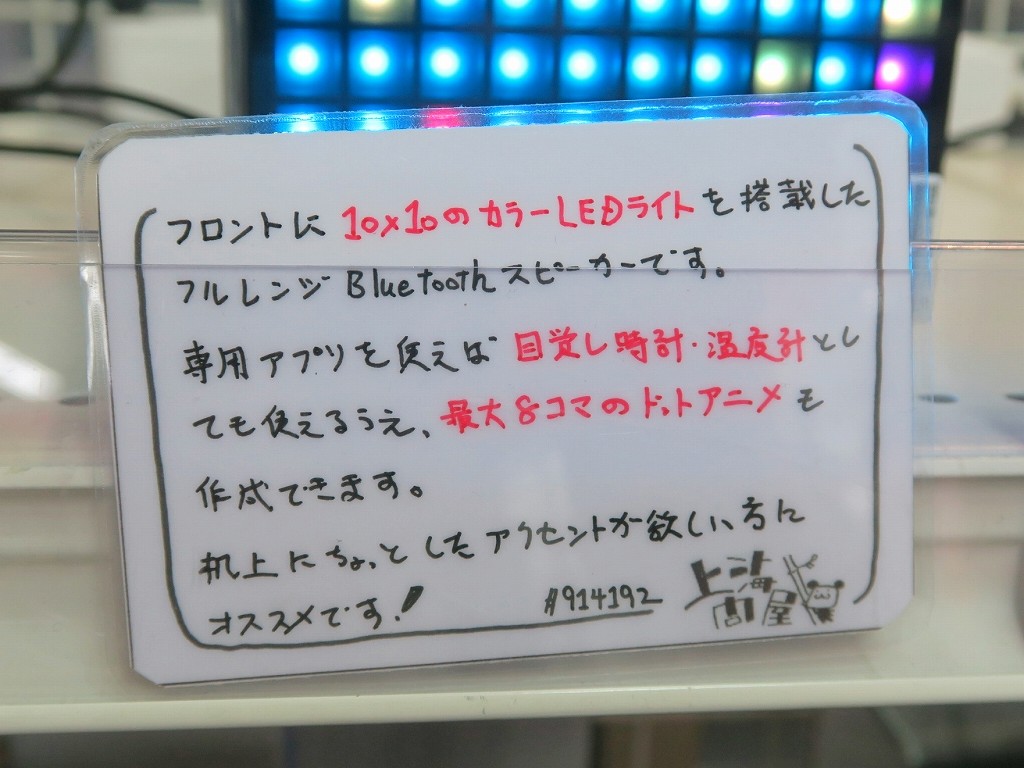 フロントに10×10のカラーLEDライトを搭載した
フルレンジBluetoothスピーカーです。
専用アプリを使えば目覚し時計・温度計とし
ても使えるうえ、最大8コマのドットアニメも
作成できます。
机上にちょっとしたアクセントが欲しい方に
オススメです!
#914192
上海問屋